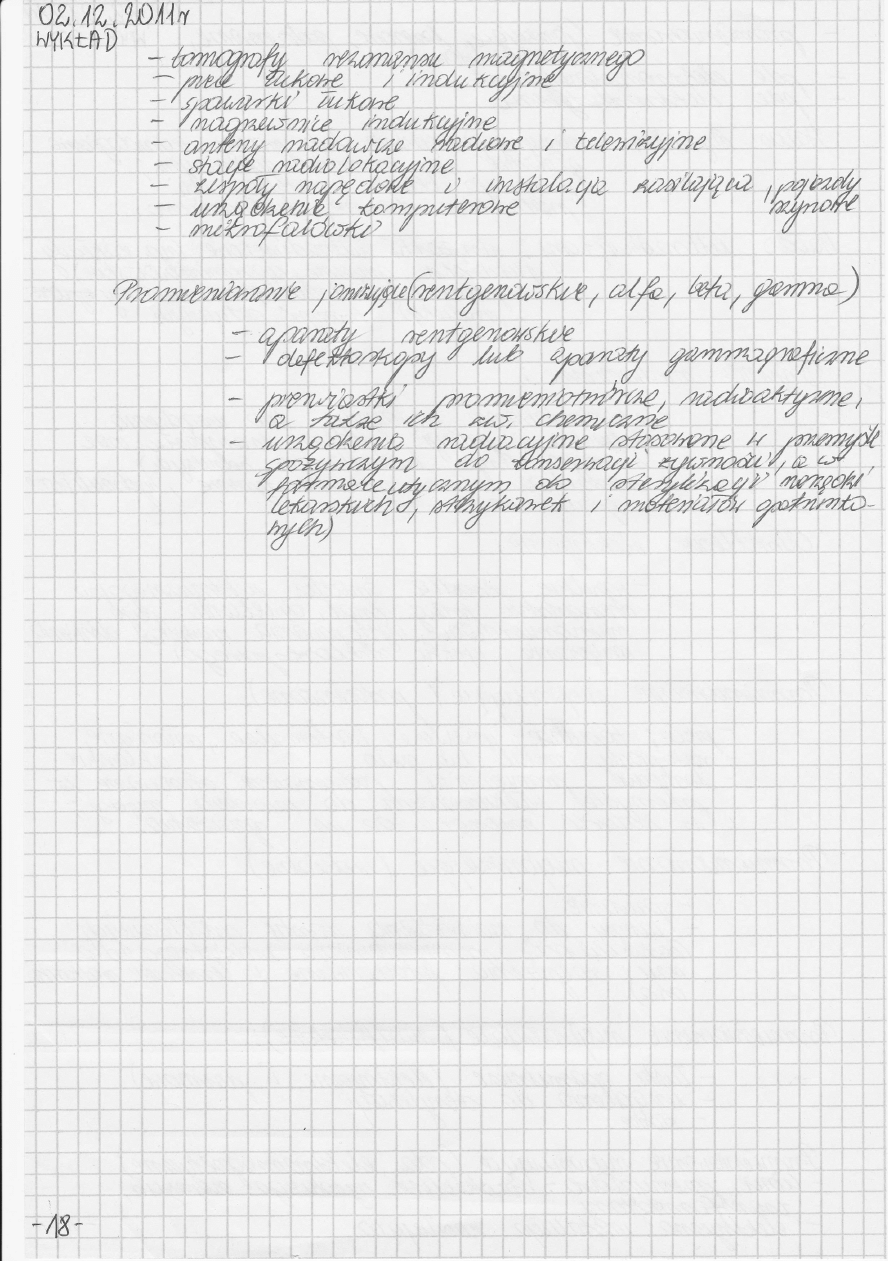 02.12.2011r
WYKŁAD
- tomografy rezonansu magnetycznego
- piece łukowe i indukcyjne
- spawarki łukowe
- nagrzewnice indukcyjne
- anteny nadawcze radiowe i telewizyjne
- stacje radiolokacyjne
- zespoły napędowe i instalacja zasilająca, pojazdy szynowe
- urządzenia komputerowe
- mikrofalówki
Promieniowanie jonizujące (rentgenowskie, alfa, beta, gamma)
- aparaty rentgenowskie
- defektoskopy lub aparaty gammagraficzne
- pierwiastki promieniotwórcze, radioaktywne,
a także ich zw. chemiczne
- urządzenia radiacyjne stosowane w przemyśle
spożywczym do konserwacji żywności, a w
farmaceutycznym do sterylizacji narzędzi
lekarskich, strzykawek i materiałów opatrunko-
wych)
-18-